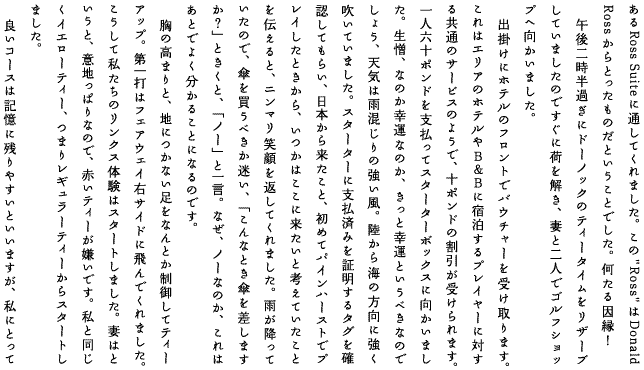 ある Ross Suite に通してくれました。この "Ross" は Donald
Ross からとったものだということでした。何たる因縁！
午後二時半過ぎにドーノックのティータイムをリザーブ
していましたのですぐに荷を解き、妻と二人でゴルフショッ
プへ向かいました。
出掛けにホテルのフロントでバウチャーを受け取ります。
これはエリアのホテルやB＆Bに宿泊するプレイヤーに対す
る共通のサービスのようで、十ポンドの割引が受けられます。
一人六十ポンドを支払ってスターターボックスに向かいまし
た。生憎、なのか幸運なのか、きっと幸運というべきなので
しょう、天気は雨混じりの強い風。陸から海の方向に強く
吹いていました。スターターに支払済みを証明するタグを確
認してもらい、日本から来たこと、初めてパインハーストでプ
レイしたときから、いつかはここに来たいと考えていたこと
を伝えると、ニンマリ笑顔を返してくれました。雨が降って
いたので、傘を買うべきか迷い、「こんなとき傘を差します
か？」ときくと、「ノー」と一言。なぜ、ノーなのか、これは
あとでよく分かることになるのです。
胸の高まりと、地につかない足をなんとか制御してティー
アップ。第一打はフェアウェイ右サイドに飛んでくれました。
こうして私たちのリンクス体験はスタートしました。妻はと
いうと、意地っぱりなので、赤いティーが嫌いです。私と同じ
くイエローティー、つまりレギュラーティーからスタートし
ました。
良いコースは記憶に残りやすいといいますが、私にとって